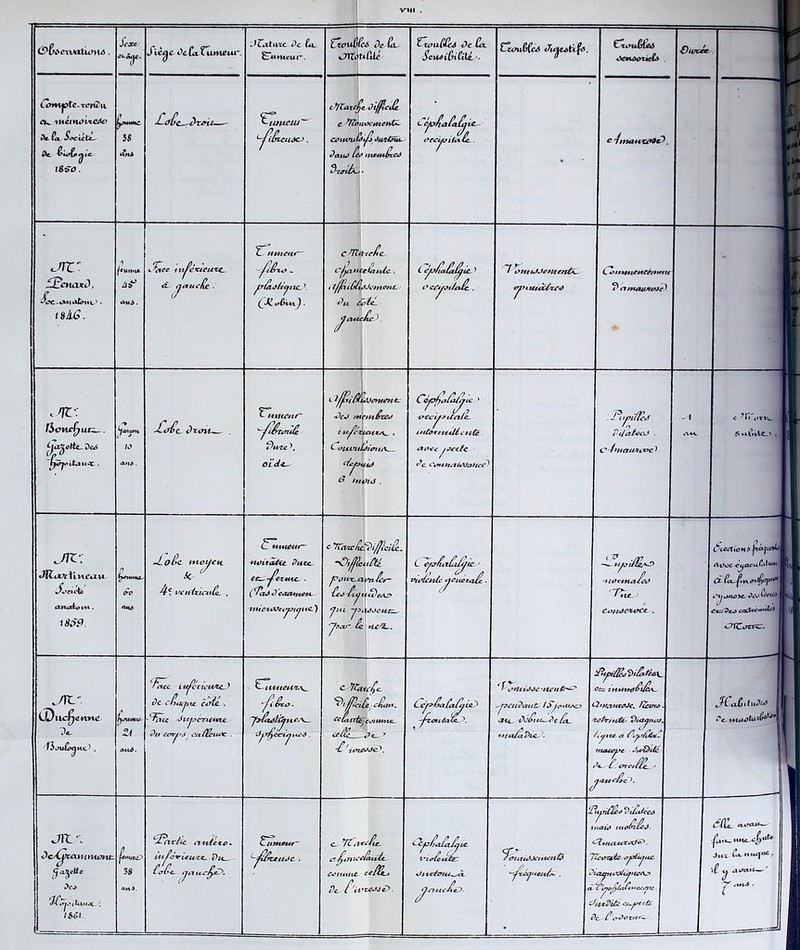 VIII.
Observations.
Sexe et âge.
Siège de la Tumeur.
Nature de la
Tumeur.
Troubles de la
Motilité
Troubles de la
Sensibilité.
Troubles digestifs.
Troubles
sensoriels.
Durée.
Compte-rendu
et mémoires
de la Société
de biologie
1850.
homme
38
ans
Lobe droit
Tumeur
fibreuse.
Marche difficile
Mouvements
convulsifs surtout
dans les membres
droits.
Céphalalgie
occipitale.
Amaurose.
Mr.
Penard.
Soc. anatom.
1846.
femme
ans.
Face inférieure
à gauche.
Tumeur
fibro-
plastique
(Robin).
Marche
chancelante.
Affaiblissement
du côté
gauche.
Céphalalgie
occipitale.
Vomissements
opiniâtres
Commencement
d'amaurose
Mr.
Bouchut.
Gazette des
hôpitaux.
Garçon
10
ans.
Lobe droit.
Tumeur
fibroïde
dure,
oïde
Affaiblissement
des membres
inférieurs.
Convulsions
depuis
6 mois.
Céphalalgie
occipitale
intermittente
avec perte
de connaissance
Pupilles
dilatées.
Amaurose.
1
an
Mort
subite.
Mr.
Martineau
Société
anatom.
1859.
homme
60
ans
Lobe moyen
&
4e ventricule.
Tumeur
noirâtre dure
et ferme.
(Pas d'examen
microscopique)
Marche difficile.
Difficulté
pour avaler
les liquides
qui passent
par le nez.
Céphalalgie
violente générale.
Pupilles
normales
Vue
conservée.
Érections fréquentes
avec éjaculation
à la fin
cyanose des lèvres
et des extrémités
Mort.
Mr.
Duchenne
de
Boulogne.
homme
21
ans.
Face inférieure
de chaque côté.
Face supérieure
du corps calleux.
Tumeurs
fibro-
plastiques
sphériques.
Marche
difficile, chan-
celante, comme
celle de
l'ivresse.
Céphalalgie
frontale.
Vomissements
pendant 15 jours
au début de la
maladie.
Pupilles dilatées
et immobiles.
Amaurose. Névro-
rétinite diagnos-
tiquée à l'ophtal-
moscope. Surdité
de l'oreille
gauche.
Habitudes
de masturbation
Mr.
de Grammont
Gazette
des
Hôpitaux.
1861.
femme
38
ans.
Partie antéro-
inférieure du
lobe gauche.
Tumeur
fibreuse.
Marche
chancelante
comme celle
de l'ivresse.
Céphalalgie
violente
surtout à
gauche.
Vomissements
fréquents.
Pupilles dilatées
mais mobiles.
Amaurose.
Névrite optique
diagnostiquée
à l'ophtalmoscope.
Surdité et perte
de l'odorat.
Elle avait
fait une chute
sur la nuque,
il y avait
7 ans.